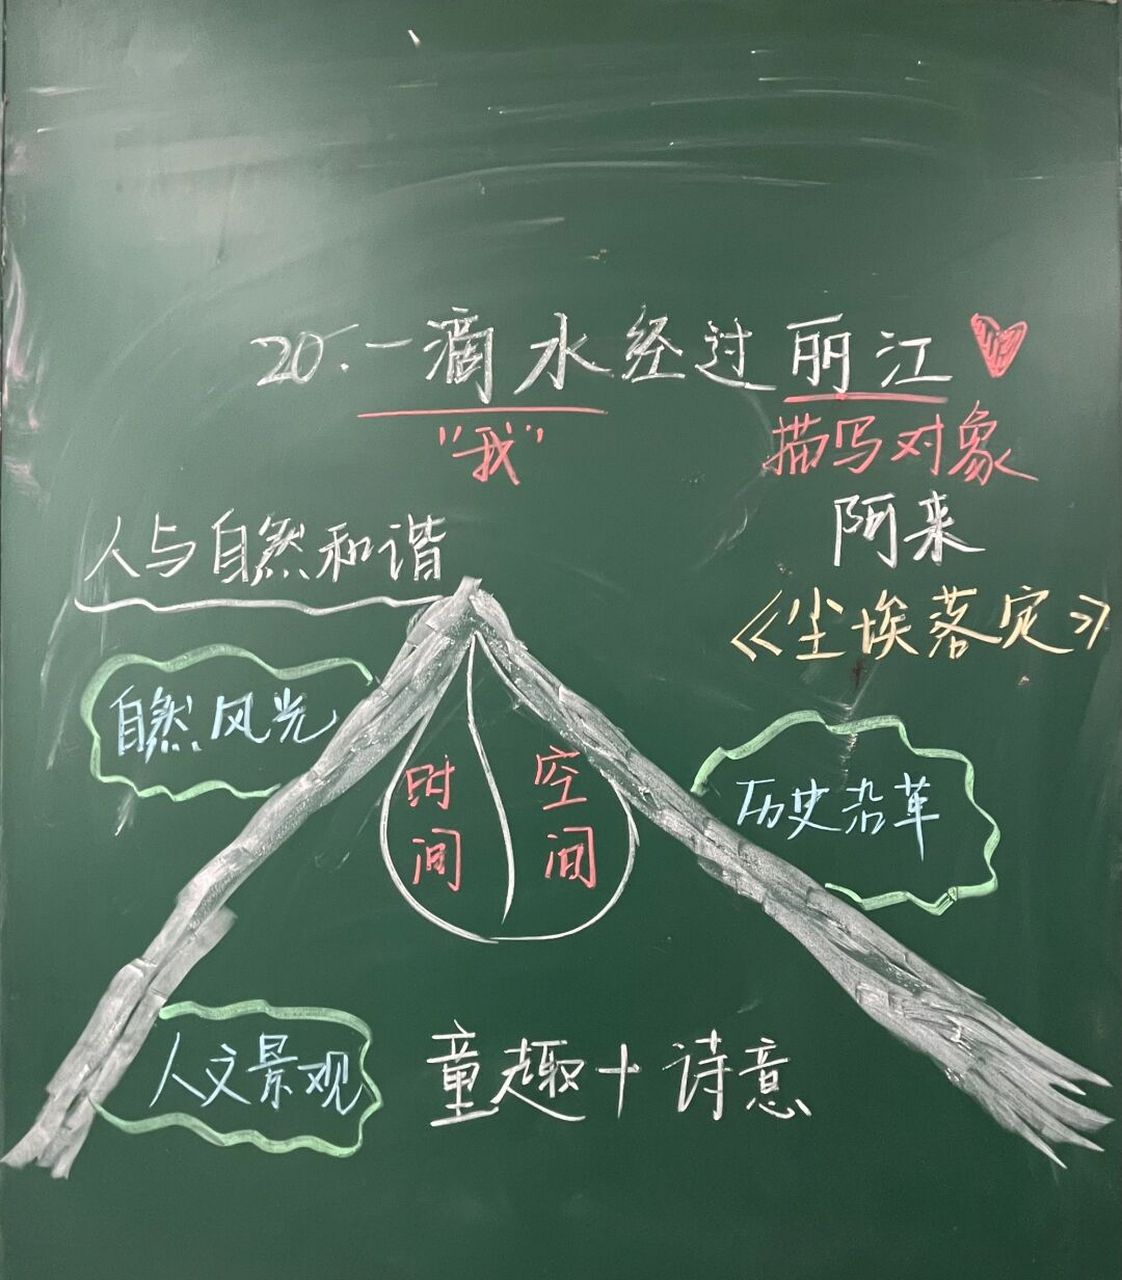 20.一滴水经过丽江
“我”
描写对象
阿来
《尘埃落定》
人与自然和谐
自然风光
时间
空间
历史沿革
人文景观
童趣+诗意